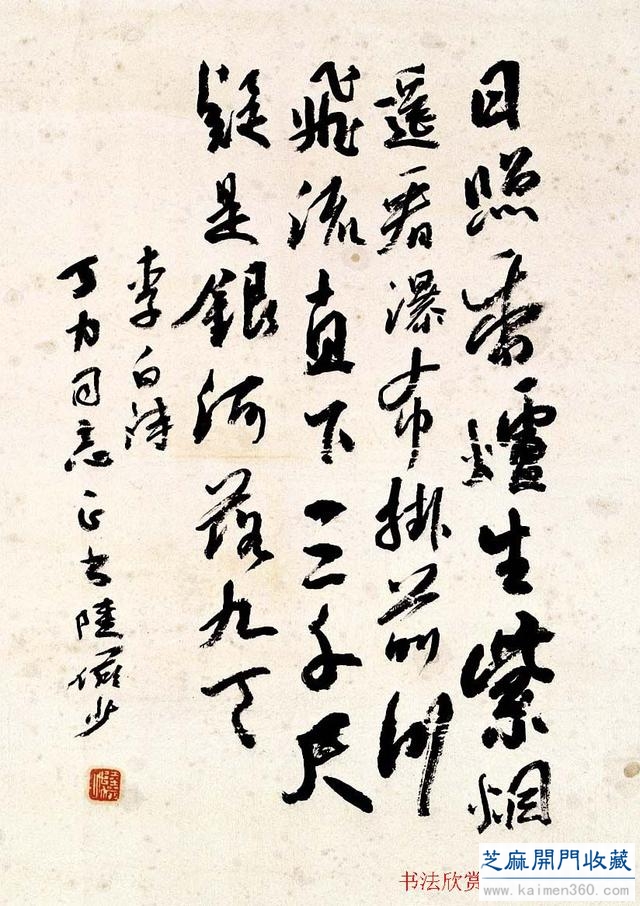 日照香爐生紫烟
遥看瀑布掛前川
飛流直下三千尺
疑是銀河落九天
李白詩
丁力同志正書陸儼少
书法欣赏
芝麻開門收藏
www.kaimen360.com